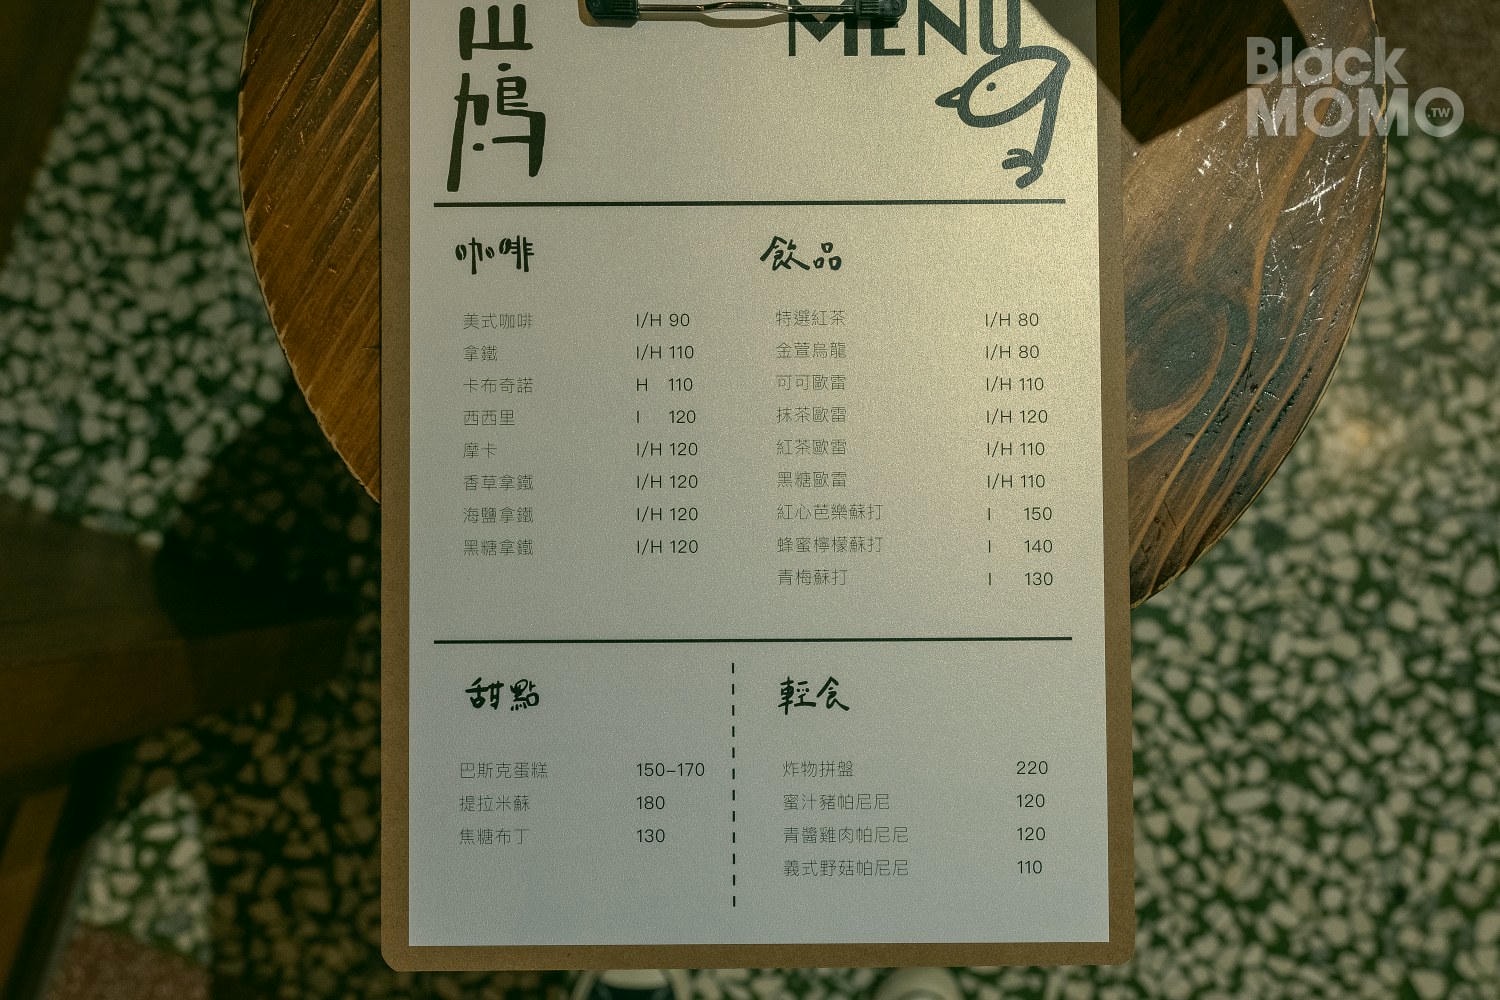 山鳩
MENU
Black
MOMO
.TW
咖啡
美式咖啡 I/H 90
拿鐵 I/H 110
卡布奇諾 H 110
西西里 I 120
摩卡 I/H 120
香草拿鐵 I/H 120
海鹽拿鐵 I/H 120
黑糖拿鐵 I/H 120
飲品
特選紅茶 I/H 80
金萱烏龍 I/H 80
可可歐雷 I/H 110
抹茶歐雷 I/H 120
紅茶歐雷 I/H 110
黑糖歐雷 I/H 110
紅心芭樂蘇打 I 150
蜂蜜檸檬蘇打 I 140
青梅蘇打 I 130
甜點
巴斯克蛋糕 150–170
提拉米蘇 180
焦糖布丁 130
輕食
炸物拼盤 220
蜜汁豬帕尼尼 120
青醬雞肉帕尼尼 120
義式野菇帕尼尼 110